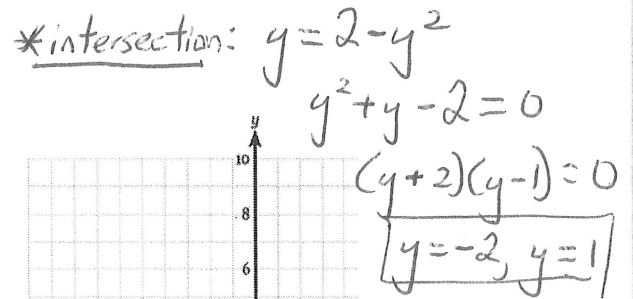 *intersection: y=2-y²
y²+y-2=0
y
10
(y+2)(y-1)=0
8
y=-2, y=1
6